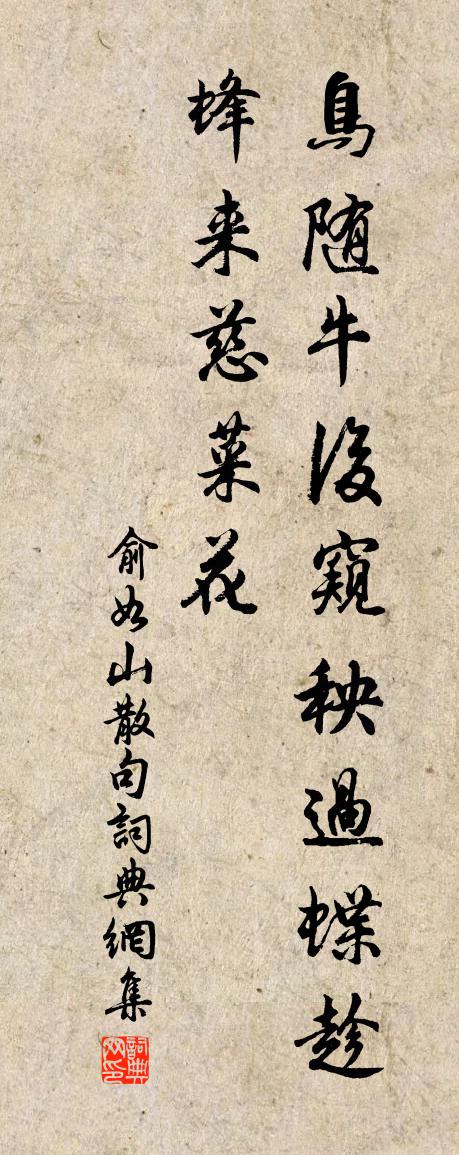 鳥随牛後窺秧過蝶趁
蜂来慈菜花
俞如山散句詞典網集
詞典
网印